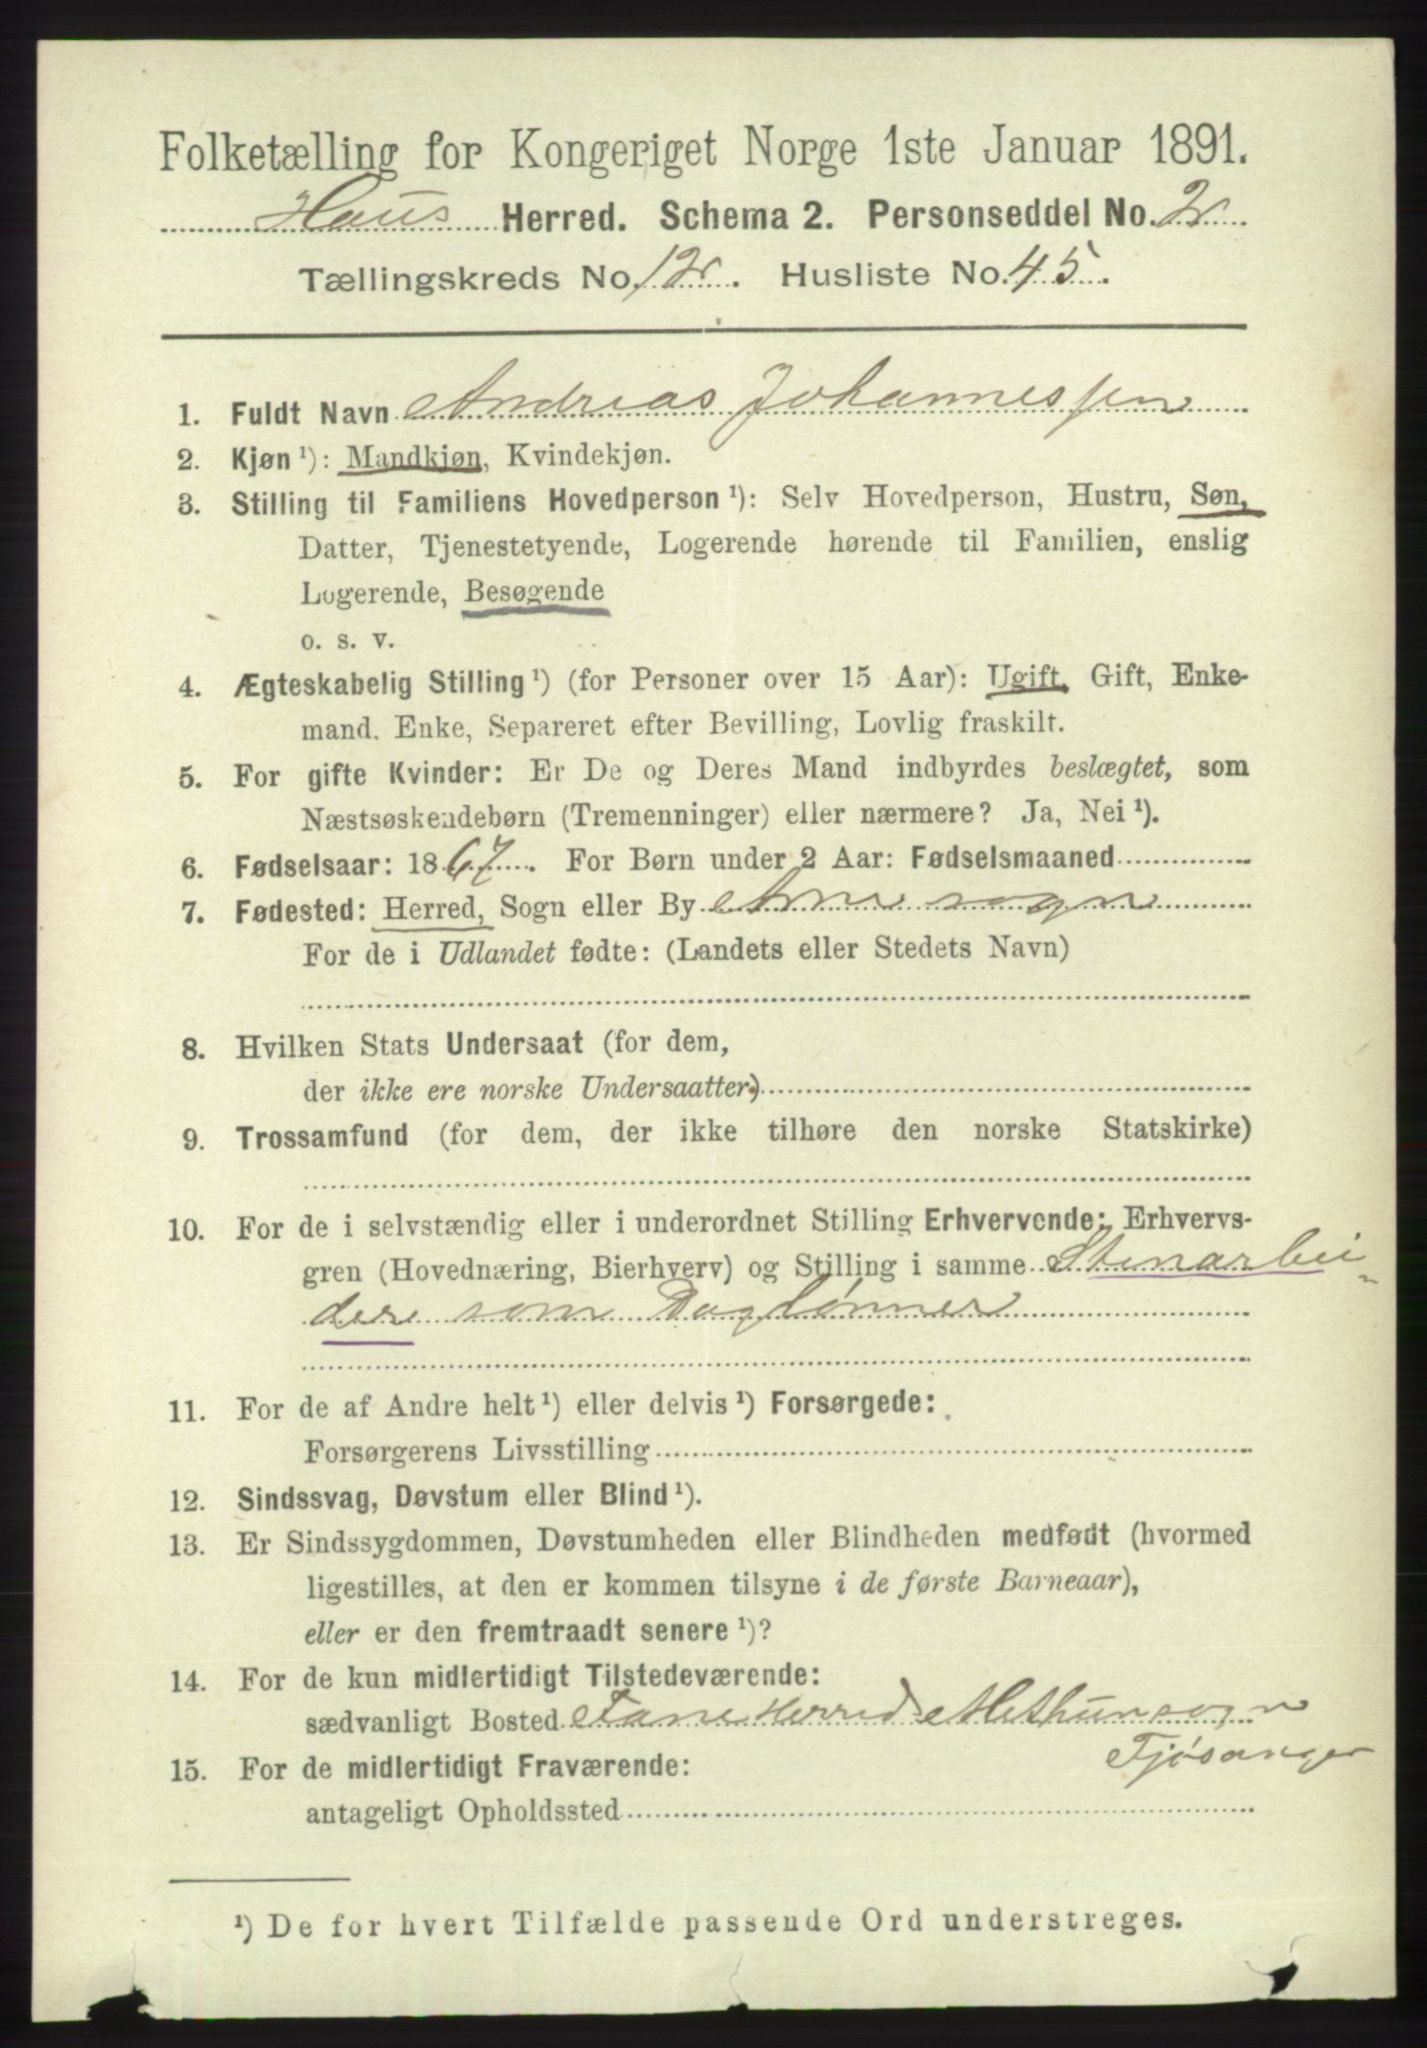 Folketælling for Kongeriget Norge 1ste Januar 1891.
Haus Herred. Schema 2. Personseddel No. 2
Tællingskreds No. 12. Husliste No. 45.
1. Fuldt Navn Andrias Johannessen
2. Kjøn ¹): Mandkjøn, Kvindekjøn.
3. Stilling til Familiens Hovedperson ¹): Selv Hovedperson, Hustru, Søn,
Datter, Tjenestetyende, Logerende hørende til Familien, enslig
Logerende, Besøgende
o. s. v.
4. Ægteskabelig Stilling ¹) (for Personer over 15 Aar): Ugift, Gift, Enke-
mand, Enke, Separeret efter Bevilling, Lovlig fraskilt.
5. For gifte Kvinder: Er De og Deres Mand indbyrdes beslægtet, som
Næstsøskendebørn (Tremenninger) eller nærmere? Ja, Nei ¹).
6. Fødselsaar: 1867. For Børn under 2 Aar: Fødselsmaaned
7. Fødested: Herred, Sogn eller By Arne sogn
For de i Udlandet fødte: (Landets eller Stedets Navn)
8. Hvilken Stats Undersaat (for dem,
der ikke ere norske Undersaatter)
9. Trossamfund (for dem, der ikke tilhøre den norske Statskirke)
10. For de i selvstændig eller i underordnet Stilling Erhvervende: Erhvervs-
gren (Hovednæring, Bierhverv) og Stilling i samme Stenarbei-
der som Daglønner
11. For de af Andre helt ¹) eller delvis ¹) Forsørgede:
Forsørgerens Livsstilling
12. Sindssvag, Døvstum eller Blind ¹).
13. Er Sindssygdommen, Døvstumheden eller Blindheden medfødt (hvormed
ligestilles, at den er kommen tilsyne i de første Barneaar),
eller er den fremtraadt senere ¹)?
14. For de kun midlertidigt Tilstedeværende:
sædvanligt Bosted Fane Herred sogn
Fjøsanger
15. For de midlertidigt Fraværende:
antageligt Opholdssted
¹) De for hvert Tilfælde passende Ord understreges.